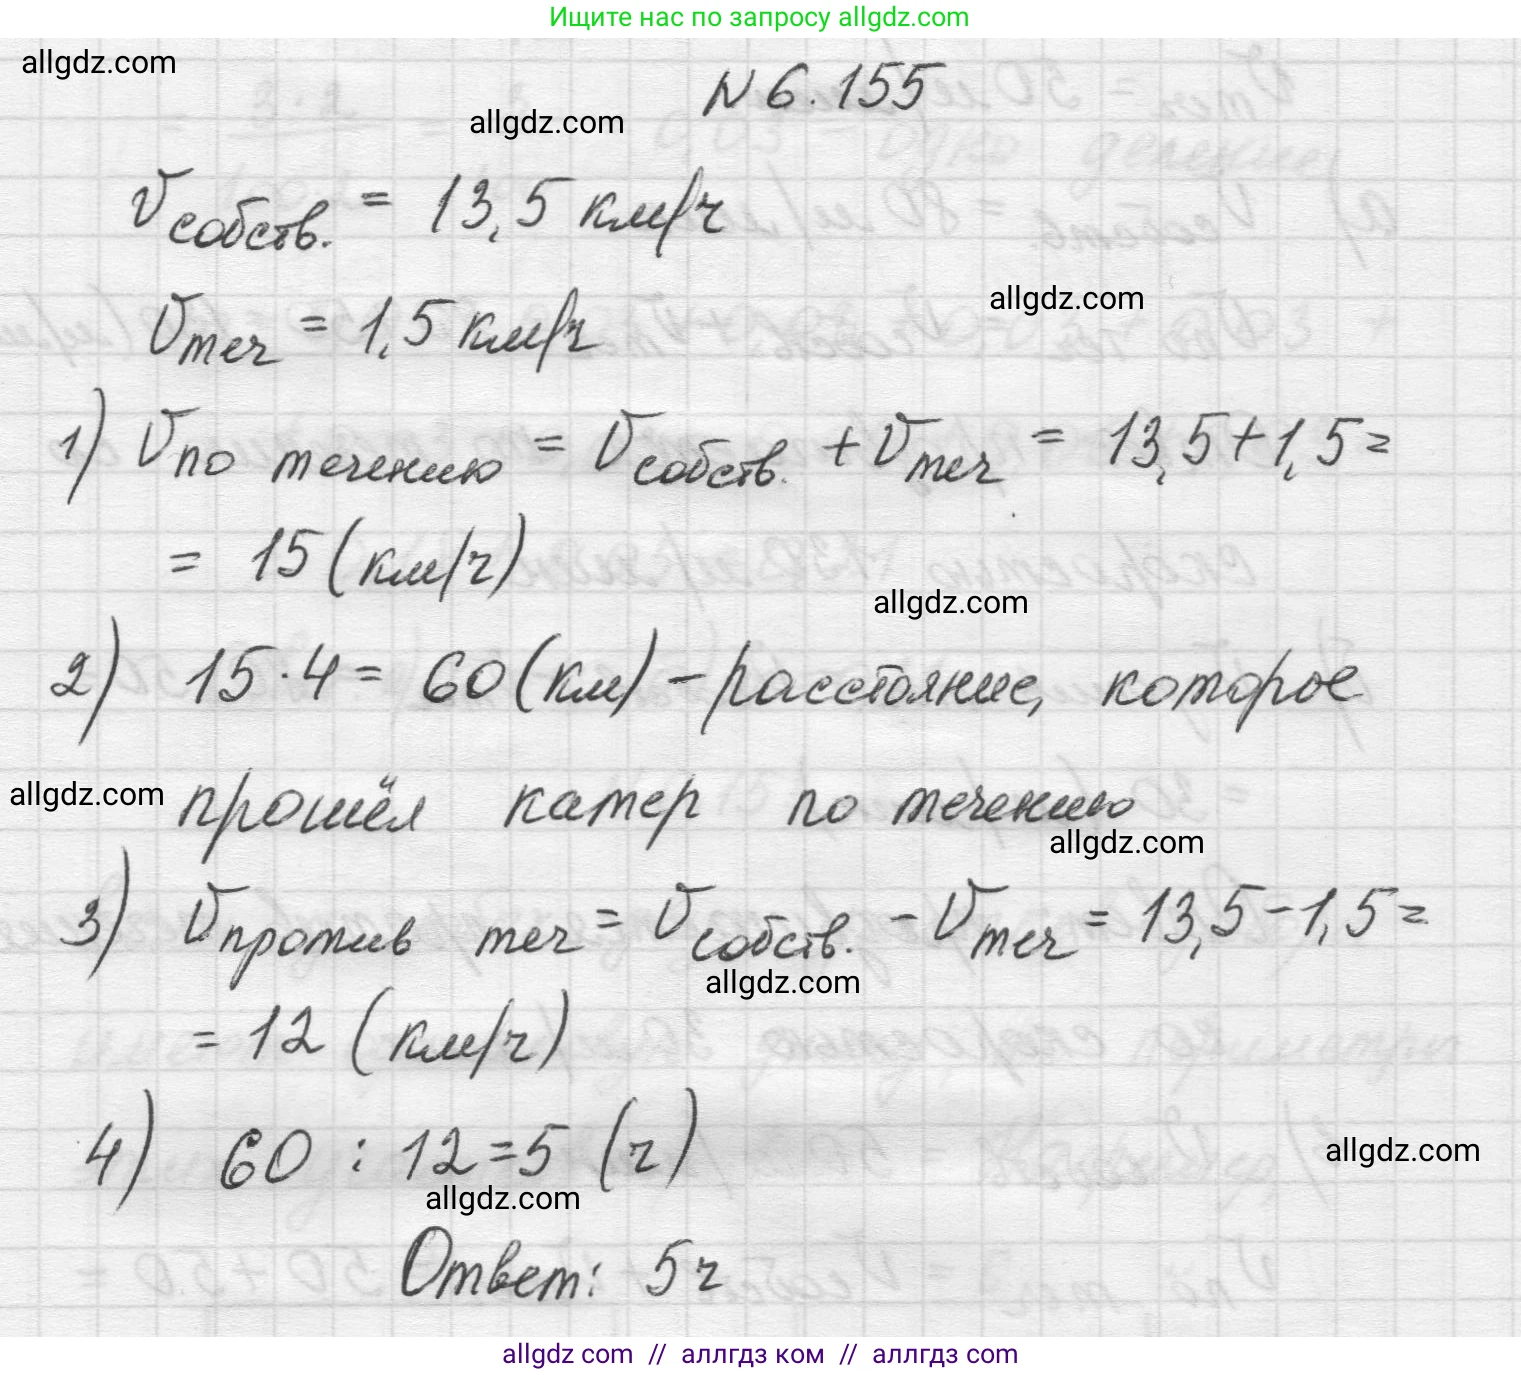 Ищите нас по запросу allgdz.com
allgdz.com
№ 6.155
allgdz.com
Vсобств. = 13,5 км/ч
allgdz.com
Vтеч = 1,5 км/ч
1) Vпо течению = Vсобств. + Vтеч = 13,5+1,5=
= 15 (км/ч)
allgdz.com
2) 15·4= 60(км) - расстояние, которое
allgdz.com
прошёл катер по течению
allgdz.com
3) Vпротив теч = Vсобств. - Vтеч = 13,5-1,5=
allgdz.com
= 12 (км/ч)
4) 60 : 12=5 (ч)
allgdz.com
allgdz.com
Ответ: 5ч
allgdz com // аллгдз ком // аллгдз com